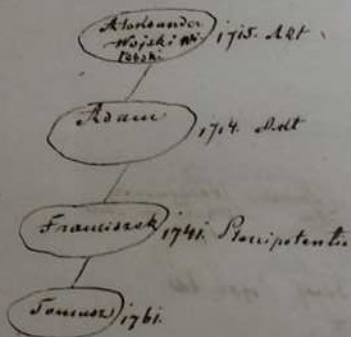 Aleksander
Wojski Wi
tebski 1715. Akt
Adam 1714. Akt
Franciszek 1741. Plenipotentia
Tomasz 1761.